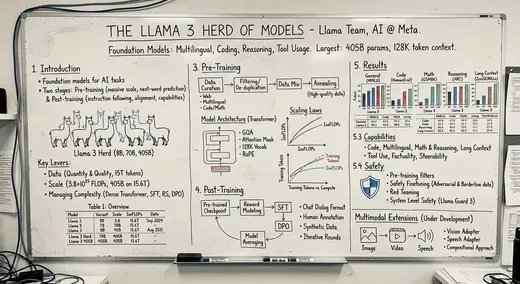 THE LLAMA 3 HERD OF MODELS - Llama Team, AI @ Meta.
Foundation Models: Multilingual, Coding, Reasoning, Tool Usage. Largest: 405B params, 128K token context.
1. Introduction
• Foundation models for AI tasks
• Two stages: Pre-training (massive scale, next-word prediction)
& Post-training (instruction following, alignment, capabilities)
Llama 3 Herd (8B, 70B, 405B)
Key Levers:
• Data (Quantity & Quality, 15T tokens)
• Scale (3.8×10²⁵ FLOPs, 405B on 15.6T)
• Managing Complexity (Dense Transformer, SFT, RS, DPO)
Table 1: Overview
Model Variant Scale Date
3. Pre-Training
Data Curation
Filtering/De-duplication
Data Mix
Annealing
(High-quality data)
• Web
• Multilingual
• Code/Math
Model Architecture (Transformer)
• GQA
• Attention Mask
• 128K Vocab
• RoPE
Scaling Laws
IsoFLOPs
Training Tokens
Training Tokens vs Compute
4. Post-Training
Pre-trained Checkpoint
Reward Modeling
SFT
DPO
Model Averaging
• Chat Dialog Format
• Human Annotation
• Synthetic Data
• Iterative Rounds
5. Results
General (MMLU)
Code (HumanEval)
Math (GSM8K)
Reasoning (ARC)
Long Context
5.3 Capabilities
• Code, Multilingual, Math, Reasoning, Long Context
• Tool Use, Factuality, Steerability
5.4 Safety
• Pre-training filters
• Safety Finetuning (Adversarial & Borderline data)
• Red Teaming
• System Level Safety (Llama Guard 3)
Multimodal Extensions (Under Development)
Image
Video
Speech
• Vision Adapter
• Speech Adapter
• Compositional Approach